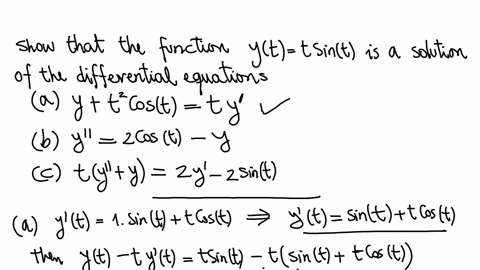 show that the function y(t) = t sin(t) is a solution
of the differential equations
(a) y + t² cos(t) = t y' ✓
(b) y'' = 2 cos(t) − y
(c) t(y'' + y) = 2y' − 2 sin(t)
(a) y'(t) = 1. sin(t) + t cos(t) ⟹ y'(t) = sin(t) + t cos(t)
then y(t) − t y'(t) = t sin(t) − t( sin(t) + t cos(t))